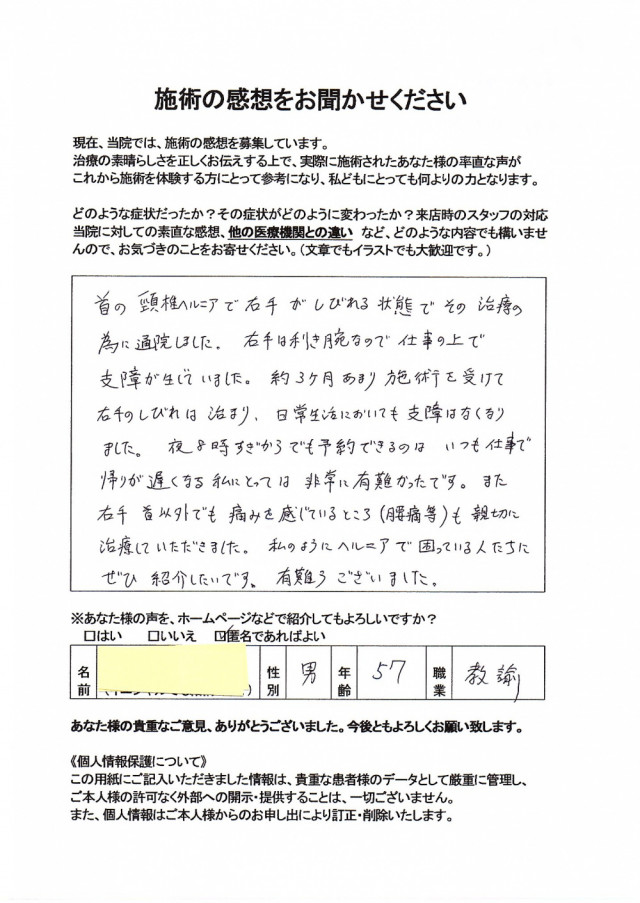 施術の感想をお聞かせください
現在、当院では、施術の感想を募集しています。
治療の素晴らしさを正しくお伝えする上で、実際に施術されたあなた様の率直な声が
これから施術を体験する方にとって参考になり、私どもにとっても何よりの力となります。
どのような症状だったか？その症状がどのように変わったか？来店時のスタッフの対応
当院に対しての素直な感想、他の医療機関との違い など、どのような内容でも構いませ
んので、お気づきのことをお寄せください。（文章でもイラストでも大歓迎です。）
首の 頸椎ヘルニアで 右手 がしびれる 状態で その 治療の
為に 通院しました。 右手は利き腕なので 仕事の上で
支障が生じていました。 約3ヶ月あまり 施術を受けて
右手のしびれは 治まり、 日常生活においても 支障はなくなり
ました。 夜8時すぎからでも予約できるのは いつも仕事で
帰りが 遅くなる 私にとっては 非常に有難かったです。 また
右手 首以外でも 痛みを感じているところ（腰痛等）も 親切に
治療していただきました。 私のようにヘルニアで 困っている人たちに
ぜひ 紹介したいです。 有難うございました。
※あなた様の声を、ホームページなどで紹介してもよろしいですか？
□はい □いいえ ☑匿名であればよい
名前 性別 男 年齢 57 職業 教諭
あなた様の貴重なご意見、ありがとうございました。今後ともよろしくお願い致します。
《個人情報保護について》
この用紙にご記入いただきました情報は、貴重な患者様のデータとして厳重に管理し、
ご本人様の許可なく外部への開示・提供することは、一切ございません。
また、個人情報はご本人様からのお申し出により訂正・削除いたします。